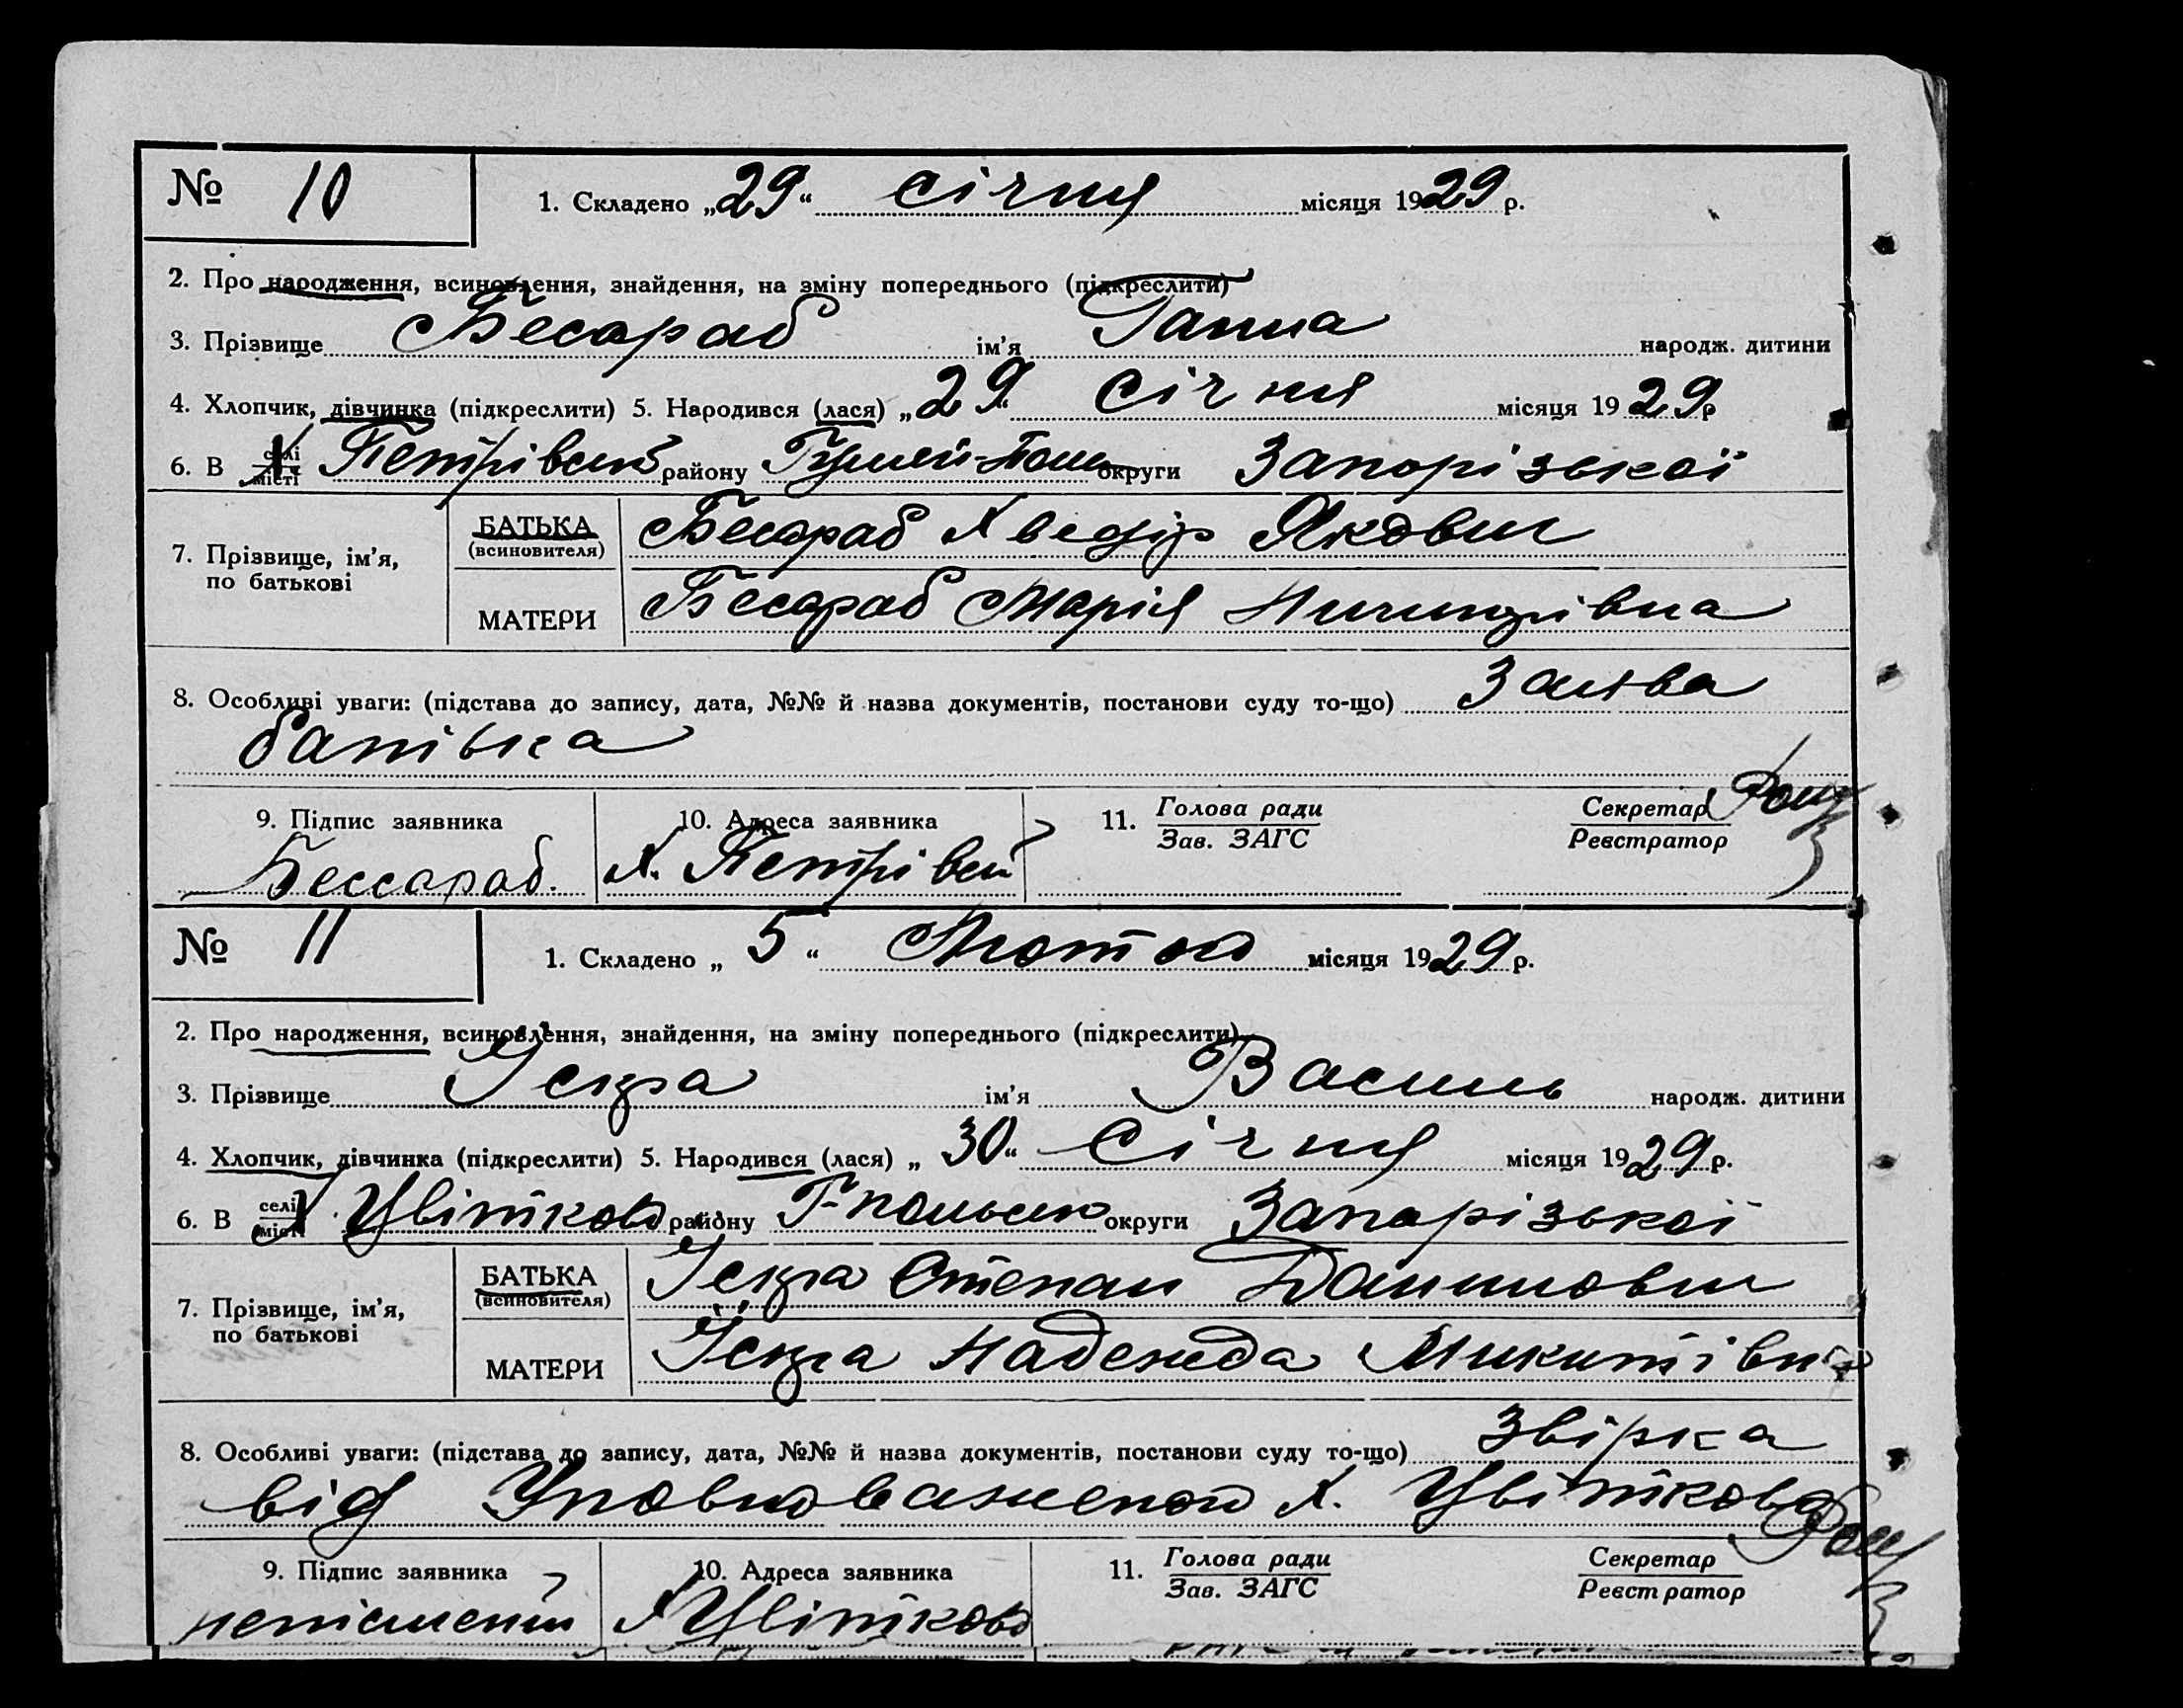 № 10
1. Складено „29“ січня місяця 1929 р.
2. Про народження, всиновлення, знайдення, на зміну попереднього (підкреслити)
3. Прізвище Бесараб ім'я Ганна народж. дитини
4. Хлопчик, дівчинка (підкреслити) 5. Народився (лася) „29“ січня місяця 1929 р
6. В селі місті х Петрівськ району Гуляй-Поль округи Запорізької
7. Прізвище, ім'я, по батькові
БАТЬКА (всиновителя) Бесараб Хведір Якович
МАТЕРИ Бесараб Марія
8. Особливі уваги: (підстава до запису, дата, №№ й назва документів, постанови суду то-що) Заява
батівка
9. Підпис заявника 10. Адреса заявника 11. Голова ради Секретар
Зав. ЗАГС Реєстратор
Бессараб. х. Петрівськ
№ 11
1. Складено „5“ Лютого місяця 1929 р.
2. Про народження, всиновлення, знайдення, на зміну попереднього (підкреслити)
3. Прізвище Іскра ім'я Василь народж. дитини
4. Хлопчик, дівчинка (підкреслити) 5. Народився (лася) „30“ січня місяця 1929 р.
6. В селі місті х Цвітково району Г-польськ округи Запорізької
7. Прізвище, ім'я, по батькові
БАТЬКА (всиновителя) Іскра Степан Данилович
МАТЕРИ Іскра Надежда Микитівна
8. Особливі уваги: (підстава до запису, дата, №№ й назва документів, постанови суду то-що) звірка
від Уповноваженого х. Цвіткова
9. Підпис заявника 10. Адреса заявника 11. Голова ради Секретар
Зав. ЗАГС Реєстратор
непісьмений х Цвітково